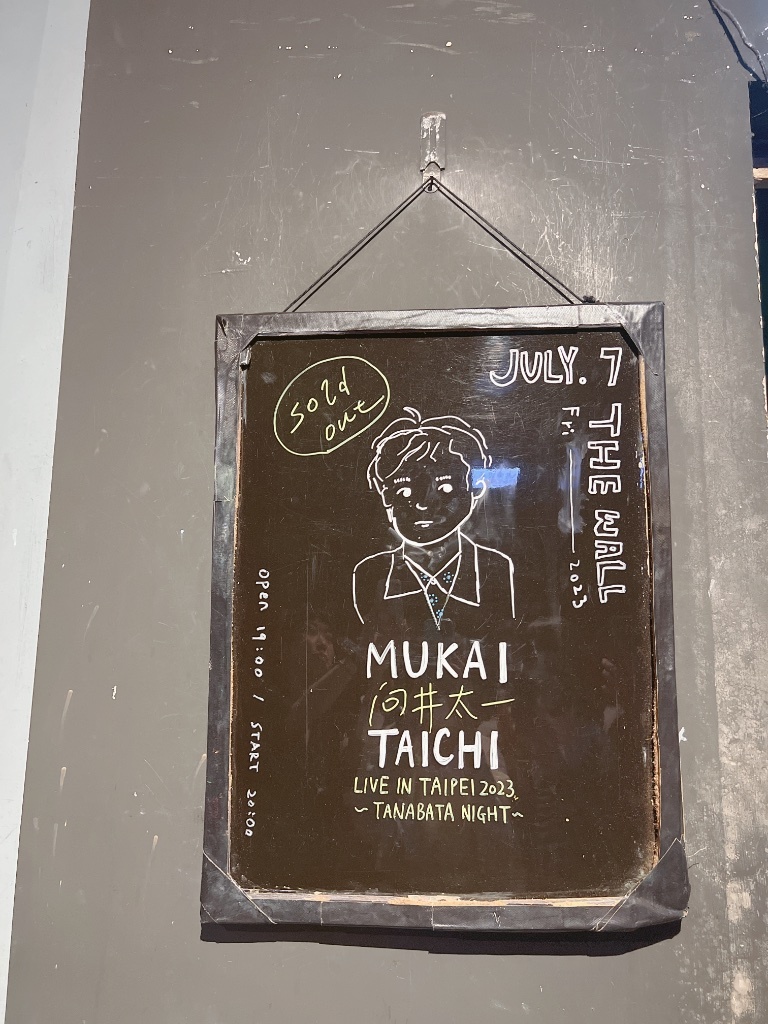 Sold
out
JULY. 7
THE WALL
Fri 2023
OPEN 19:00 / START 20:00
MUKAI
向井太一
TAICHI
LIVE IN TAIPEI 2023.
~ TANABATA NIGHT ~